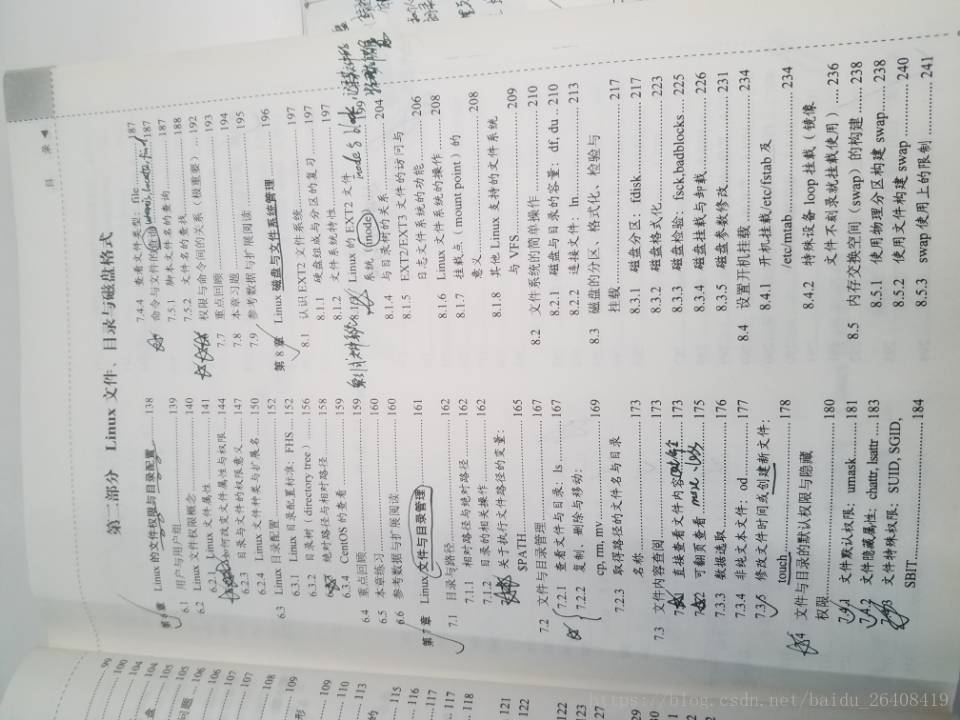 目 录
第二部分 Linux 文件、目录与磁盘格式
第 6 章 Linux 的文件权限与目录配置 138
6.1 用户与用户组 139
6.2 Linux 文件权限概念 140
6.2.1 Linux 文件属性 141
如何改变文件属性与权限 144
6.2.3 目录与文件的权限意义 147
6.2.4 Linux 文件种类与扩展名 150
6.3 Linux 目录配置 152
6.3.1 Linux 目录配置标准：FHS 152
6.3.2 目录树（directory tree） 156
绝对路径与相对路径 158
6.3.4 CentOS 的查看 159
6.4 重点回顾 159
6.5 本章练习 160
6.6 参考数据与扩展阅读 160
第 7 章 Linux 文件与目录管理 161
7.1 目录与路径 162
7.1.1 相对路径与绝对路径 162
7.1.2 目录的相关操作 162
关于执行文件路径的变量：
$PATH 165
7.2 文件与目录管理 167
7.2.1 查看文件与目录：ls 167
7.2.2 复制、删除与移动：
cp, rm, mv 169
7.2.3 取得路径的文件名与目录
名称 173
7.3 文件内容查阅 173
直接查看文件内容 173
可翻页查看 more less 175
7.3.3 数据选取 176
7.3.4 非纯文本文件：od 177
7.3.5 修改文件时间或创建新文件：
touch 178
文件与目录的默认权限与隐藏
权限 180
7.4.1 文件默认权限：umask 181
7.4.2 文件隐藏属性：chattr, lsattr 183
文件特殊权限：SUID, SGID,
SBIT 184
7.4.4 查看文件类型：file 187
命令与文件的查询 187
7.5.1 脚本文件名的查询 187
7.5.2 文件名的查找 188
权限与命令间的关系（极重要） 192
7.7 重点回顾 193
7.8 本章习题 194
7.9 参考数据与扩展阅读 195
第 8 章 Linux 磁盘与文件系统管理 196
8.1 认识 EXT2 文件系统 197
8.1.1 硬盘组成与分区的复习 197
8.1.2 文件系统特性 197
8.1.3 Linux 的 EXT2 文件
系统（inode） 199
8.1.4 与目录树的关系 204
8.1.5 EXT2/EXT3 文件的访问与
日志文件系统的功能 206
8.1.6 Linux 文件系统的操作 208
8.1.7 挂载点（mount point）的
意义 208
8.1.8 其他 Linux 支持的文件系统
与 VFS 209
8.2 文件系统的简单操作 210
8.2.1 磁盘与目录的容量：df, du 210
8.2.2 连接文件：ln 213
8.3 磁盘的分区、格式化、检验与
挂载 217
8.3.1 磁盘分区：fdisk 217
8.3.2 磁盘格式化 223
8.3.3 磁盘检验：fsck,badblocks 225
8.3.4 磁盘挂载与卸载 226
8.3.5 磁盘参数修改 231
8.4 设置开机挂载 234
8.4.1 开机挂载/etc/fstab 及
/etc/mtab 234
8.4.2 特殊设备 loop 挂载（镜像
文件不刻录就挂载使用） 236
8.5 内存交换空间（swap）的构建 238
8.5.1 使用物理分区构建 swap 238
8.5.2 使用文件构建 swap 240
8.5.3 swap 使用上的限制 241
https://blog.csdn.net/baidu_26408419